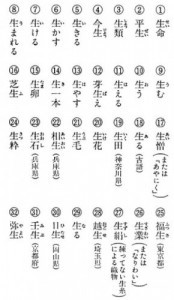 ①生命
②平生
③生類
④今生
⑤生きる
⑥生かす
⑦生ける
⑧生まれる
⑨生む
⑩生う
⑪生える
⑫芽生え
⑬生やす
⑭生一本
⑮生卵
⑯芝生
⑰生憎(または「あやにく」)
⑱生る(古語)
⑲生田(神奈川県)
⑳生花
㉑生毛
㉒相生(兵庫県)
㉓生石(兵庫県)
㉔生粋
㉕福生(東京都)
㉖生業(または「なりわい」)
㉗生絹(練ってない生糸による織物)
㉘越生(埼玉県)
㉙生る
㉚日生(岡山県)
㉛壬生(京都府)
㉜弥生